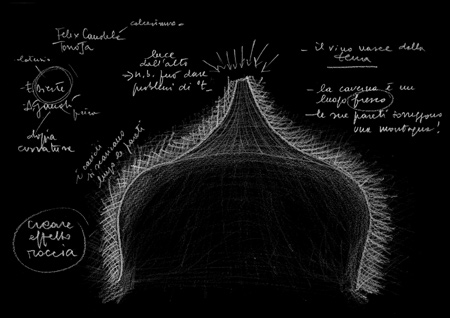 Felix Candela
Torroja
luce
dall'alto
→ n.b. può dare
problemi di t°
- il vino nasce dalla
terra
- la caverna è un
luogo fresco
- le sue pareti sorreggono
una montagna!
doppia
curvatura
i carichi
si scaricano
lungo le pareti
creare
effetto
roccia